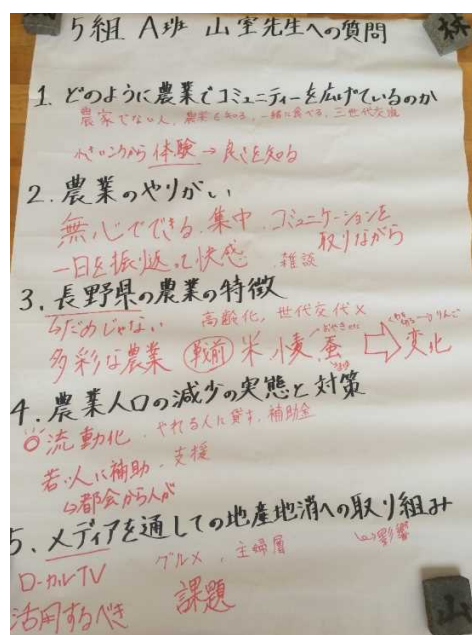 5組 A班 山室先生への質問
1. どのように農業でコミュニティーを広げているのか
農家でない人、農業を知る、一緒に食べる、三世代交流
小さいころから体験→良さを知る
2. 農業のやりがい
無心でできる、集中、コミュニケーションを取りながら
一日を振り返って快感 雑談
3. 長野県の農業の特徴
だめじゃない 高齢化、世代交代×
多彩な農業 戦前 米 小麦 蚕 ⇨ 変化
おやき
りんご
4. 農業人口の減少の実態と対策
◎流動化、やれる人に貸す、補助金
若い人に補助、支援
都会から人が
5. メディアを通しての地産地消への取り組み
ローカルTV グルメ、主婦層 影響
活用するべき 課題
林
山